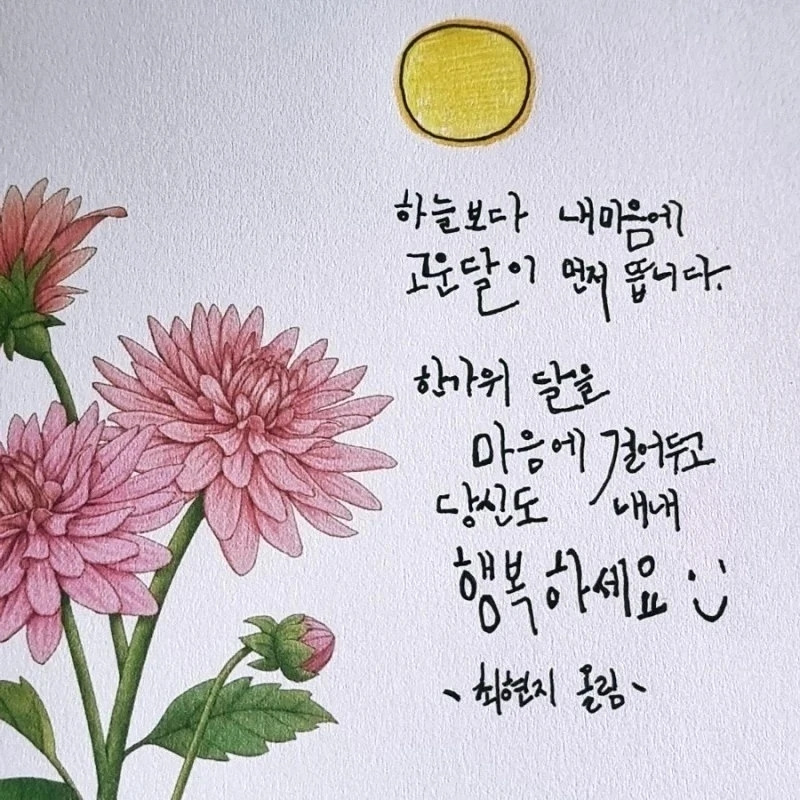 하늘보다 내마음에
고운달이 먼저 뜹니다.
한가위 달을
마음에 걸어두고
당신도 내내
행복하세요 :)
~ 최현지 올림 ~